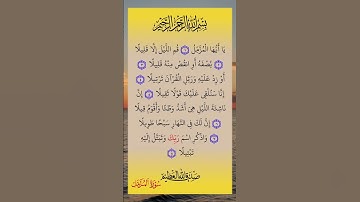 بسم الله الرحمن الرحيم
يَا أَيُّهَا الْمُزَّمِّلُ ۝ قُمِ اللَّيْلَ إِلَّا قَلِيلًا
۝ نِّصْفَهُ أَوِ انقُصْ مِنْهُ قَلِيلًا ۝
أَوْ زِدْ عَلَيْهِ وَرَتِّلِ الْقُرْآنَ تَرْتِيلًا ۝
إِنَّا سَنُلْقِي عَلَيْكَ قَوْلًا ثَقِيلًا ۝ إِنَّ
نَاشِئَةَ اللَّيْلِ هِيَ أَشَدُّ وَطْئًا وَأَقْوَمُ قِيلًا
۝ إِنَّ لَكَ فِي النَّهَارِ سَبْحًا طَوِيلًا
۝ وَاذْكُرِ اسْمَ رَبِّكَ وَتَبَتَّلْ إِلَيْهِ
تَبْتِيلًا
صدق الله العظيم
سورة المزمل